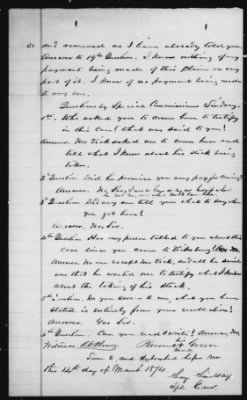 and removed as I have already told you.
Answer to 19th Question. I know nothing of any
payment being made of this claim or any
part of it. I know of no payment being made
to any one.
Questions by Special Commissioner Lindsay.
1st. Who asked you to come here to testify
in this case? What was said to you?
Answer. asked me to come here and
tell what I know about his stock being
taken.
2d Question. Did he promise you any pay for doing?
Answer. No Sir,
3d Question. Did any one tell you what to say when
you got here?
Answer. No, Sir.
4th Question. Has any person talked to you about this
case since you came to
Answer. No one except Mr. and all he said
was that he wanted me to testify what I know
about the taking of his stock.
5th Question. Do you swear to me, that what you have
stated is entirely from your recollection?
Answer. Yes Sir.
6th Question. Can you read & write? Answer, No
Witness Green
mark
Sworn to and subscribed before me
this 14th day of March 1874.
Lindsay
Spl. Com.